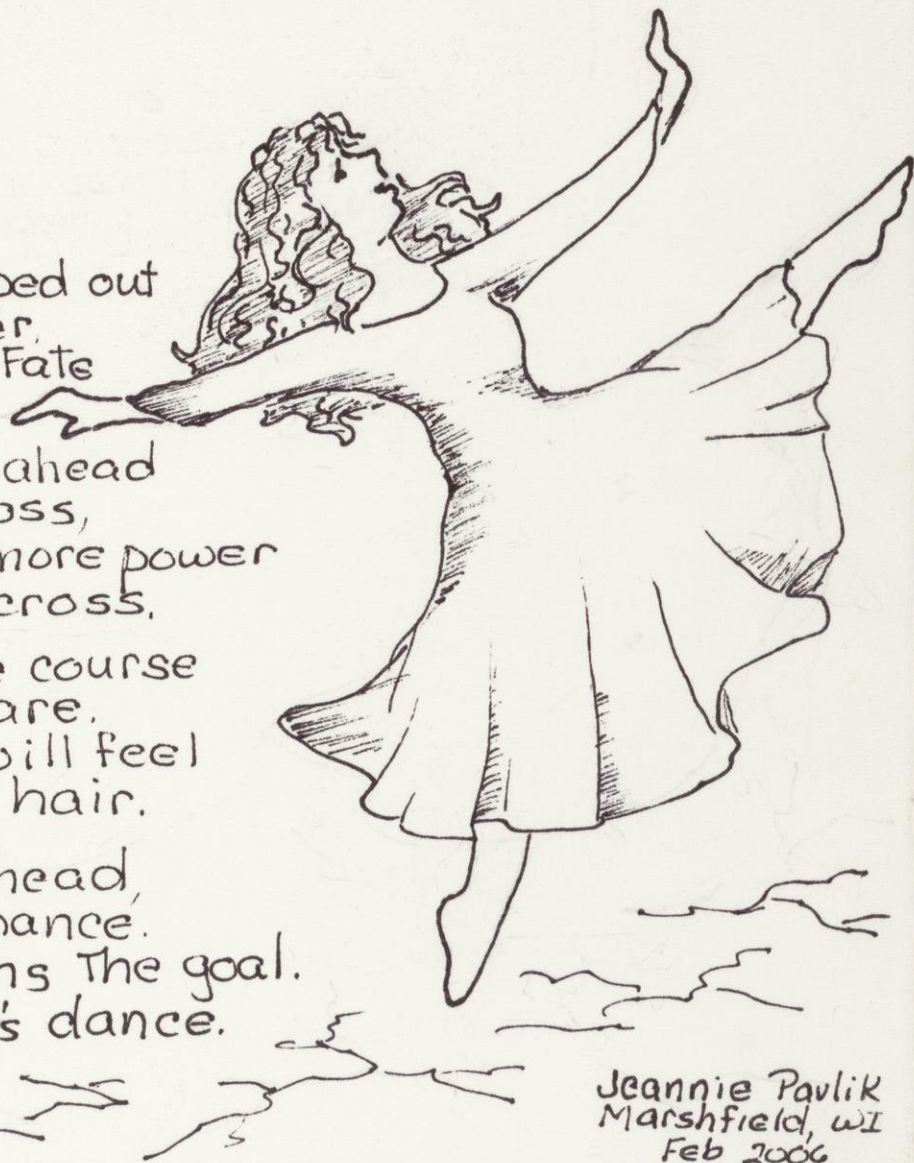 ped out
er,
Fate
ahead
oss,
more power
cross,
e course
are.
will feel
hair.
head,
pance.
ns The goal.
's dance.
Jeannie Pavlik
Marshfield, WI
Feb 2006